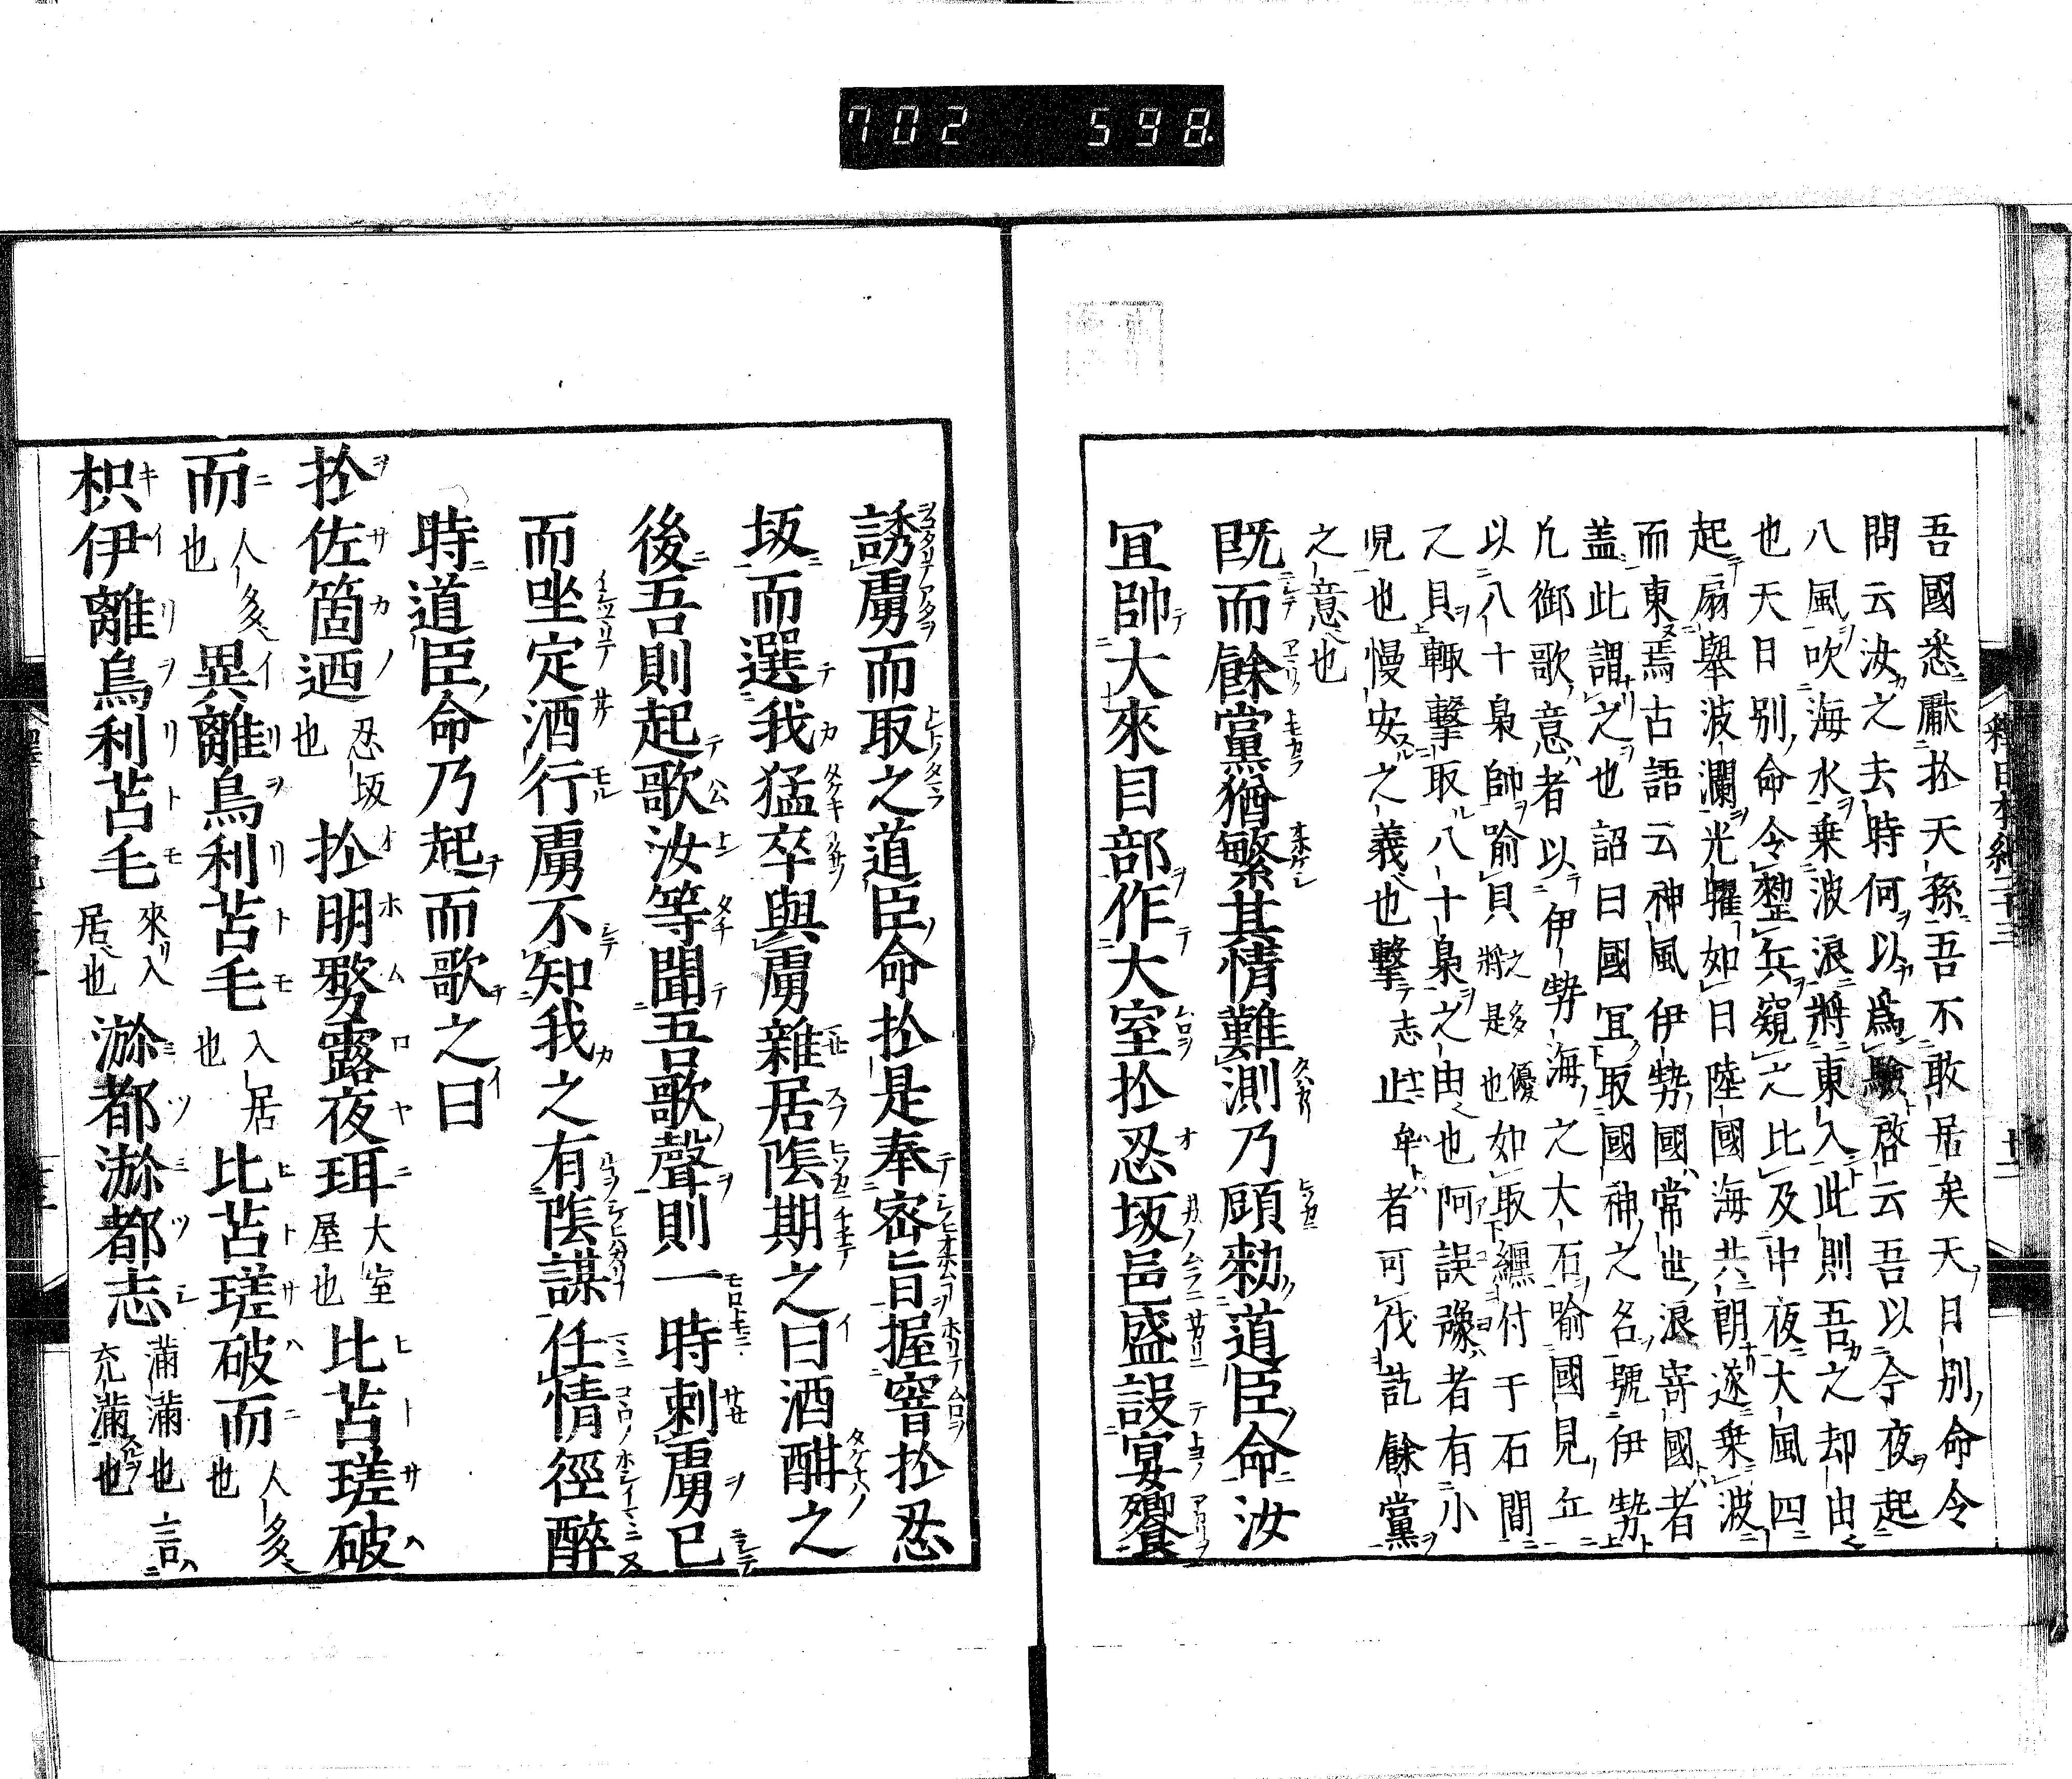 702 598
釋日本紀二十三 十二
吾國悉厭於天孫吾不敢居矣天日別命令
問云汝之去時何以爲驗啓云吾以今夜起
八風吹海水乗波浪將東入此則吾之却由
也天日別命令整兵窺之比及中夜大風四
起扇舉波瀾光曜如日陸國海共朗遂乗波
而東焉古語云神風伊勢國常世浪寄國者
盖此謂之也詔曰國冝取國神之名號伊勢
凡御歌意者以伊勢海之大石喻國見丘
以八十梟帥喻貝之多將是優也如取纒付于石間
之貝輙擊取八十梟之由也阿誤豫者有小
児也慢安之義也擊志止牟者可伐訖餘黨
之意也
既而餘黨猶繁其情難測乃顧勅道臣命汝
冝帥大來目部作大室於忍坂邑盛設宴饗
誘虜而取之道臣命於是奉密旨握窨於忍
坂而選我猛卒與虜雜居陰期之曰酒酣之
後吾則起歌汝等聞吾歌聲則一時刺虜已
而坐定酒行虜不知我之有陰謀任情徑醉
時道臣命乃起而歌之曰
於佐箇廼忍坂也於朋務露夜珥大室屋也比苔瑳破
而人多也異離烏利苔毛入居也比苔瑳破而人多也
枳伊離烏利苔毛來入居也瀰都瀰都志滿滿也言充滿也